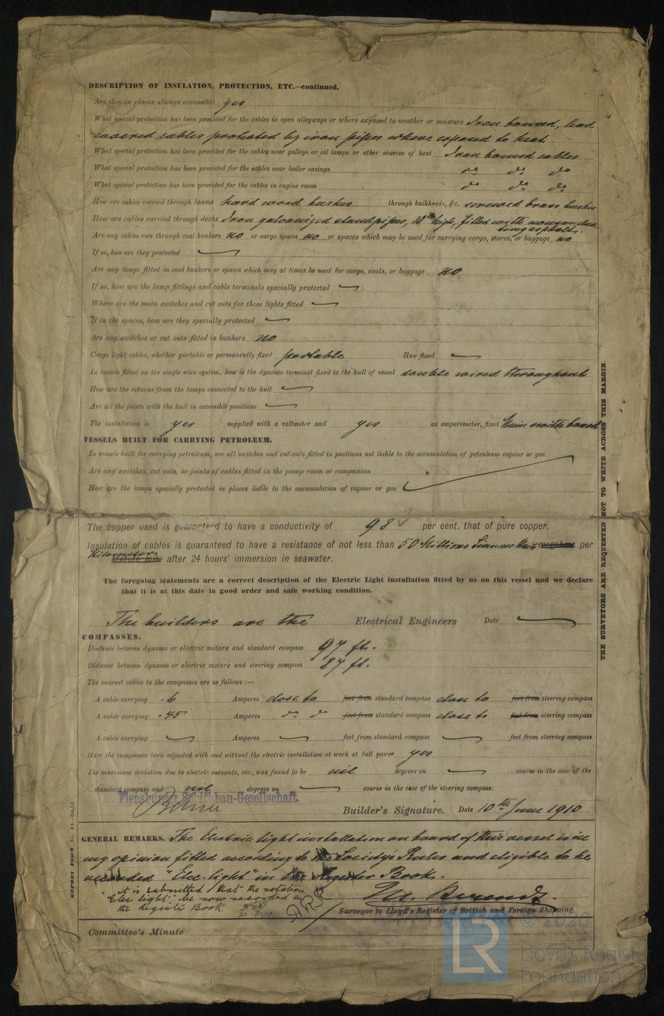 DESCRIPTION OF INSULATION, PROTECTION, ETC.—continued.
Are they in places always accessible yes
What special protection has been provided for the cables in open alleyways or where exposed to weather or moisture Iron bound, lead
covered cables protected by iron pipes where exposed to heat.
What special protection has been provided for the cables near galleys or oil lamps or other sources of heat Iron bound cables
What special protection has been provided for the cables near boiler casings do do do
What special protection has been provided for the cables in engine room do do do
How are cables carried through beams hard wood bushes through bulkheads, &c. screwed brass bushes
How are cables carried through decks Iron galvanized standpipes, high, fitted with
Are any cables run through coal bunkers no or cargo spaces no or spaces which may be used for carrying cargo, stores, or baggage no
If so, how are they protected
Are any lamps fitted in coal bunkers or spaces which may at times be used for cargo, coals, or baggage no
If so, how are the lamp fittings and cable terminals specially protected
Where are the main switches and cut outs for these lights fitted
If in the spaces, how are they specially protected
Are any switches or cut outs fitted in bunkers no
Cargo light cables, whether portable or permanently fixed portable How fixed
In vessels fitted on the single wire system, how is the dynamo terminal fixed to the hull of vessel double wired throughout
How are the returns from the lamps connected to the hull
Are all the joints with the hull in accessible positions
The installation is yes supplied with a voltmeter and yes an amperemeter, fixed
VESSELS BUILT FOR CARRYING PETROLEUM.
In vessels built for carrying petroleum, are all switches and cut-outs fitted in positions not liable to the accumulation of petroleum vapour or gas
Are any switches, cut outs, or joints of cables fitted in the pump room or companion
How are the lamps specially protected in places liable to the accumulation of vapour or gas
The copper used is guaranteed to have a conductivity of 98 per cent. that of pure copper.
Insulation of cables is guaranteed to have a resistance of not less than 50 megohms per
Kilometer statute mile after 24 hours' immersion in seawater.
The foregoing statements are a correct description of the Electric Light installation fitted by us on this vessel and we declare
that it is at this date in good order and safe working condition.
The builders are the Electrical Engineers Date
COMPASSES.
Distance between dynamo or electric motors and standard compass 97 ft.
Distance between dynamo or electric motors and steering compass 87 ft.
The nearest cables to the compasses are as follows:—
A cable carrying .6 Amperes close to feet from standard compass close to feet from steering compass
A cable carrying .45 Amperes do do feet from standard compass close to feet from steering compass
A cable carrying Amperes feet from standard compass feet from steering compass
Have the compasses been adjusted with and without the electric installation at work at full power yes
The maximum deviation due to electric currents, etc., was found to be nil degrees on course in the case of the
standard compass and nil degrees on course in the case of the steering compass.
Flensburger Schiffsbau-Gesellschaft.
Builder's Signature. Date 10th June 1910
GENERAL REMARKS. The Electric light installation on board of this vessel is in
my opinion fitted according to the Society's Rules and eligible to be
recorded "Elec. light" in the Register Book.
It is submitted that the notation
"Elec light" be now recorded in
the Register Book
Surveyor to Lloyd's Register of British and Foreign Shipping.
Committee's Minute
THE SURVEYORS ARE REQUESTED NOT TO WRITE ACROSS THIS MARGIN.
LR
Lloyd's Register
Foundation